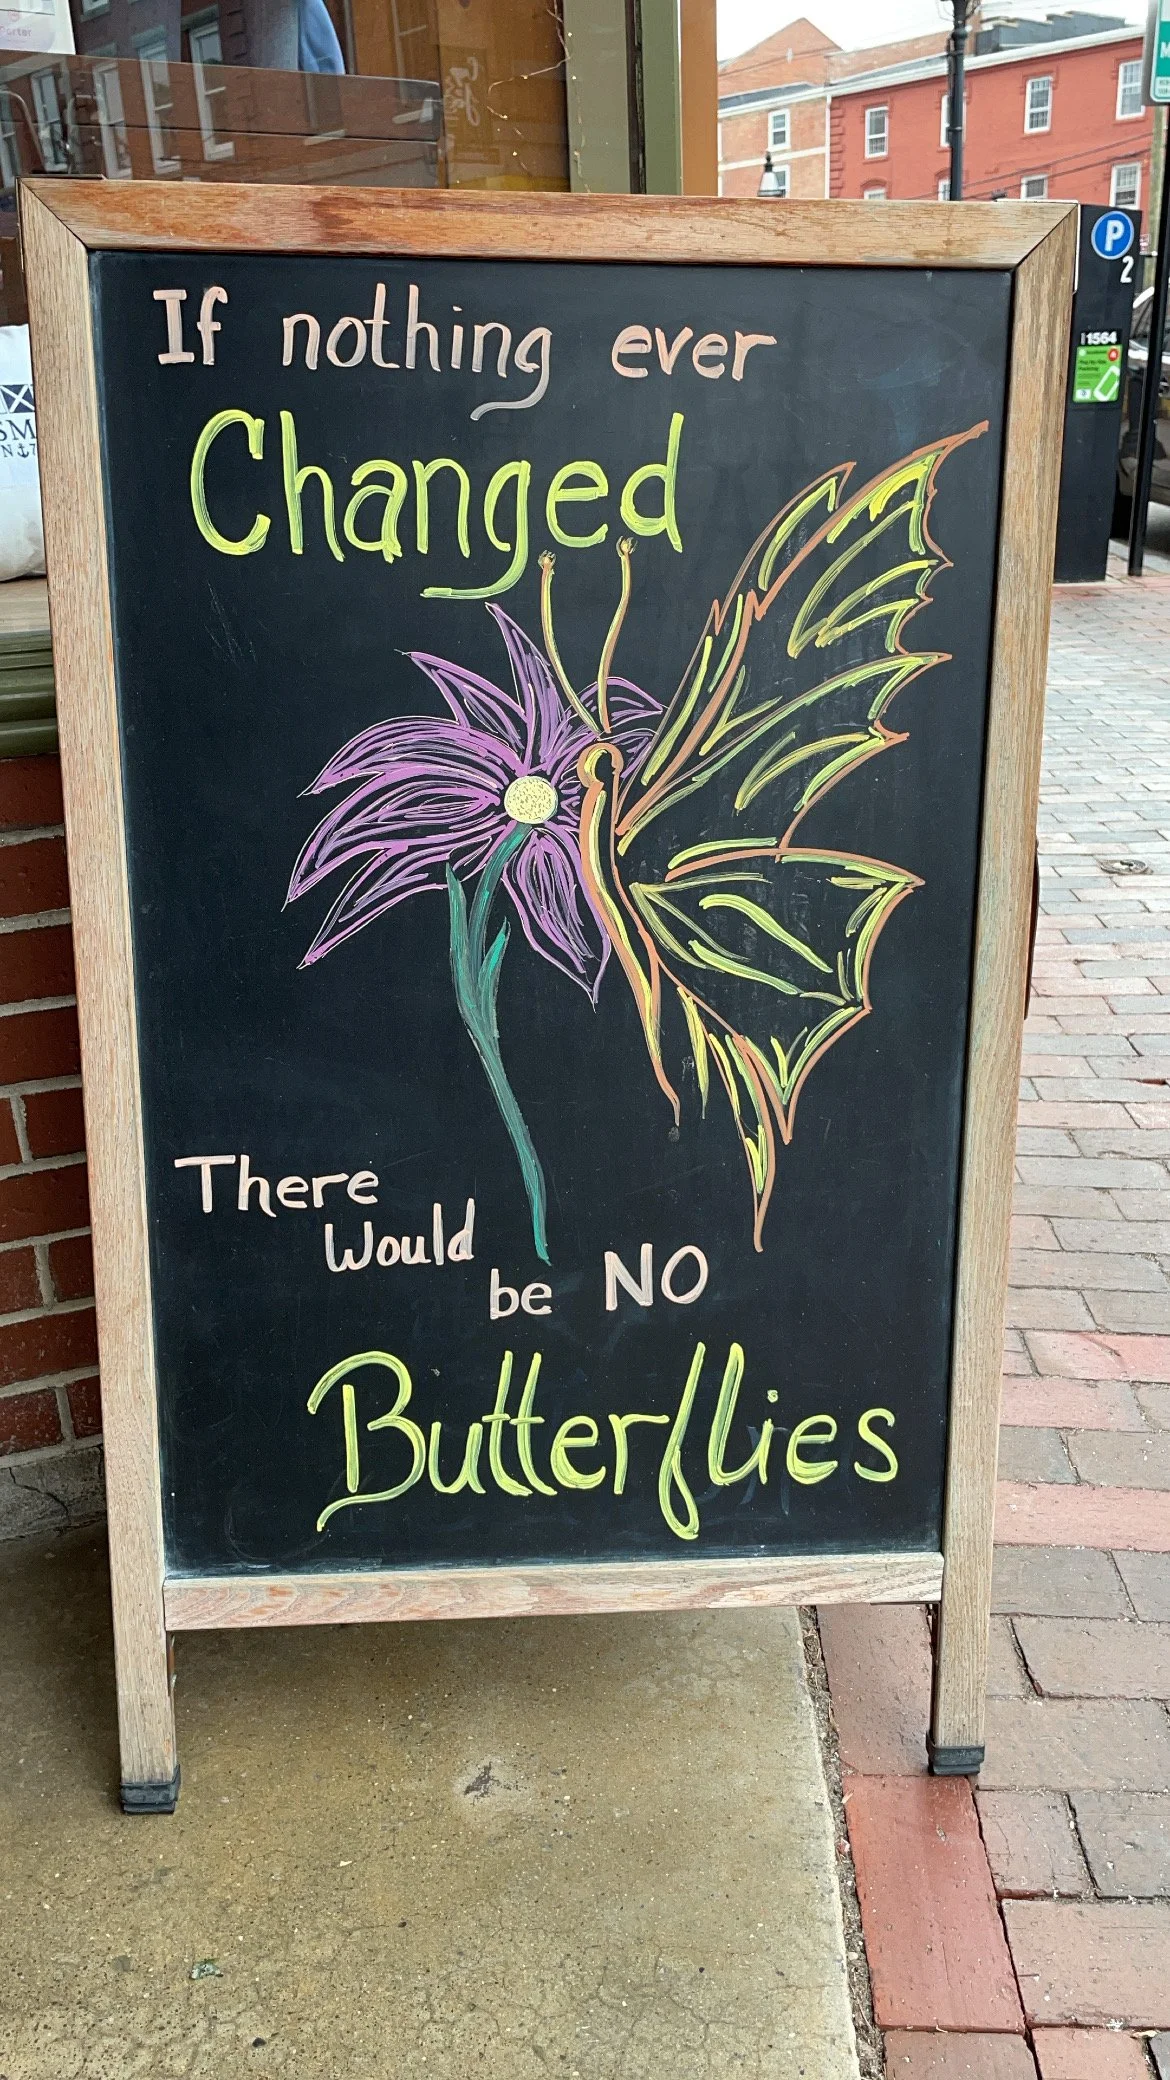 If nothing ever
Changed
There
Would
be NO
Butterflies
P
2
1564